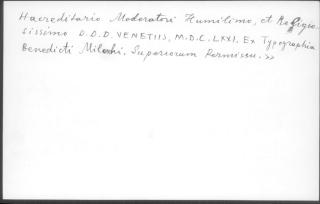 Haereditario Moderatori Humilimo, et Religio-
sissimo D.D.D. VENETIIS, M.D.C.LXXI. Ex Typographia
Benedicti Milochi. Superiorum Permissu. >>